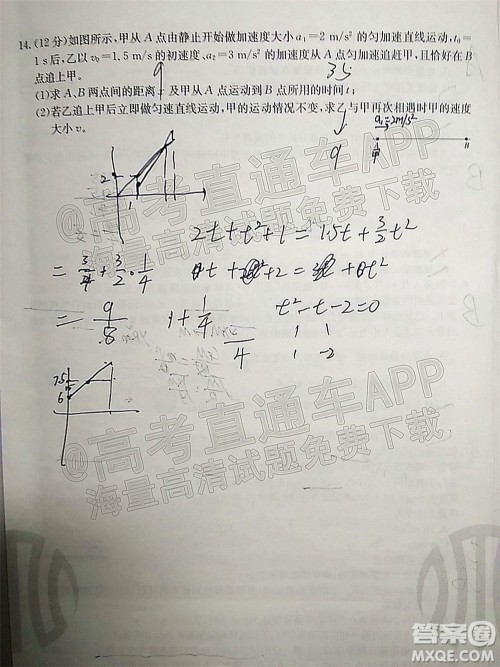 14.(12分)如图所示,甲从A点由静止开始做加速度大小a₁=2 m/s²的匀加速直线运动,t₀=
1 s后,乙以v₀=1.5 m/s的初速度、a₂=3 m/s²的加速度从A点匀加速追赶甲,且恰好在B
点追上甲。
9 3s
(1)求A、B两点间的距离 及甲从A点运动到B点所用的时间t;
(2)若乙追上甲后立即做匀速直线运动,甲的运动情况不变,求乙与甲再次相遇时甲的速度
大小v。
a₁=2m/s²
9
甲
2
1
2t+t²+1=1.5t+3/2t²
=3/4+3/2·1/4
=9/8
1+1/4
t²-t-2=0
1 1
1 -2
4
7.5
6
@高考直通车APP
海量高清试题免费下载
@高考直通车APP
海量高清试题免费下载
答案圈
MXQE.COM